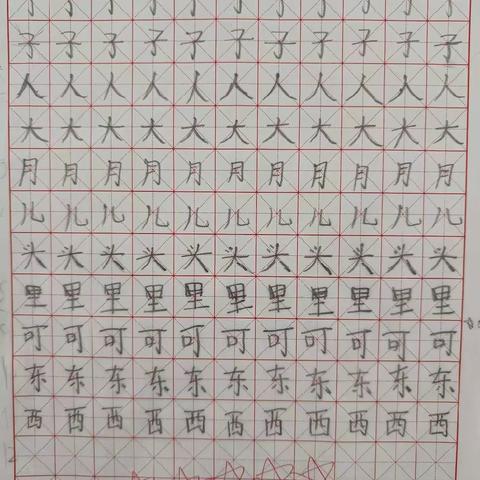 子子子子子子子子子子子
人人人人人人人人人人人
大大大大大大大大大大大
月月月月月月月月月月月
儿儿儿儿儿儿儿儿儿儿儿
头头头头头头头头头头头
里里里里里里里里里里里
可可可可可可可可可可可
东东东东东东东东东东东
西西西西西西西西西西西